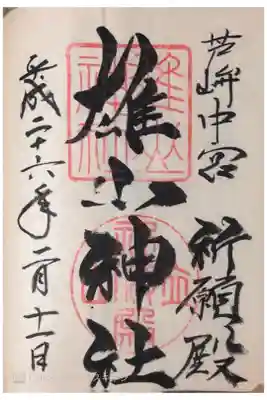 芦峅中宮
祈願殿
雄山神社
平成二十六年二月十一日
雄山
神社